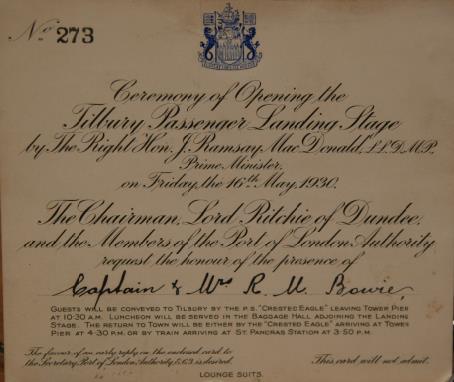 No 273
Ceremony of Opening the
Tilbury Passenger Landing Stage
by The Right Hon. J. Ramsay MacDonald, LL.D. M.P.
Prime Minister,
on Friday, the 16th May, 1930.
The Chairman, Lord Ritchie of Dundee,
and the Members of the Port of London Authority
request the honour of the presence of
Captain & Mrs R. U. Bowie,
GUESTS WILL BE CONVEYED TO TILBURY BY THE P.S. "CRESTED EAGLE" LEAVING TOWER PIER
AT 10·30 A.M. LUNCHEON WILL BE SERVED IN THE BAGGAGE HALL ADJOINING THE LANDING
STAGE. THE RETURN TO TOWN WILL BE EITHER BY THE "CRESTED EAGLE" ARRIVING AT TOWER
PIER AT 4·30 P.M. OR BY TRAIN ARRIVING AT ST. PANCRAS STATION AT 3·50 P.M.
The favour of an early reply on the enclosed card to
the Secretary, Port of London Authority, E.C.3 is desired.
This card will not admit.
LOUNGE SUITS.